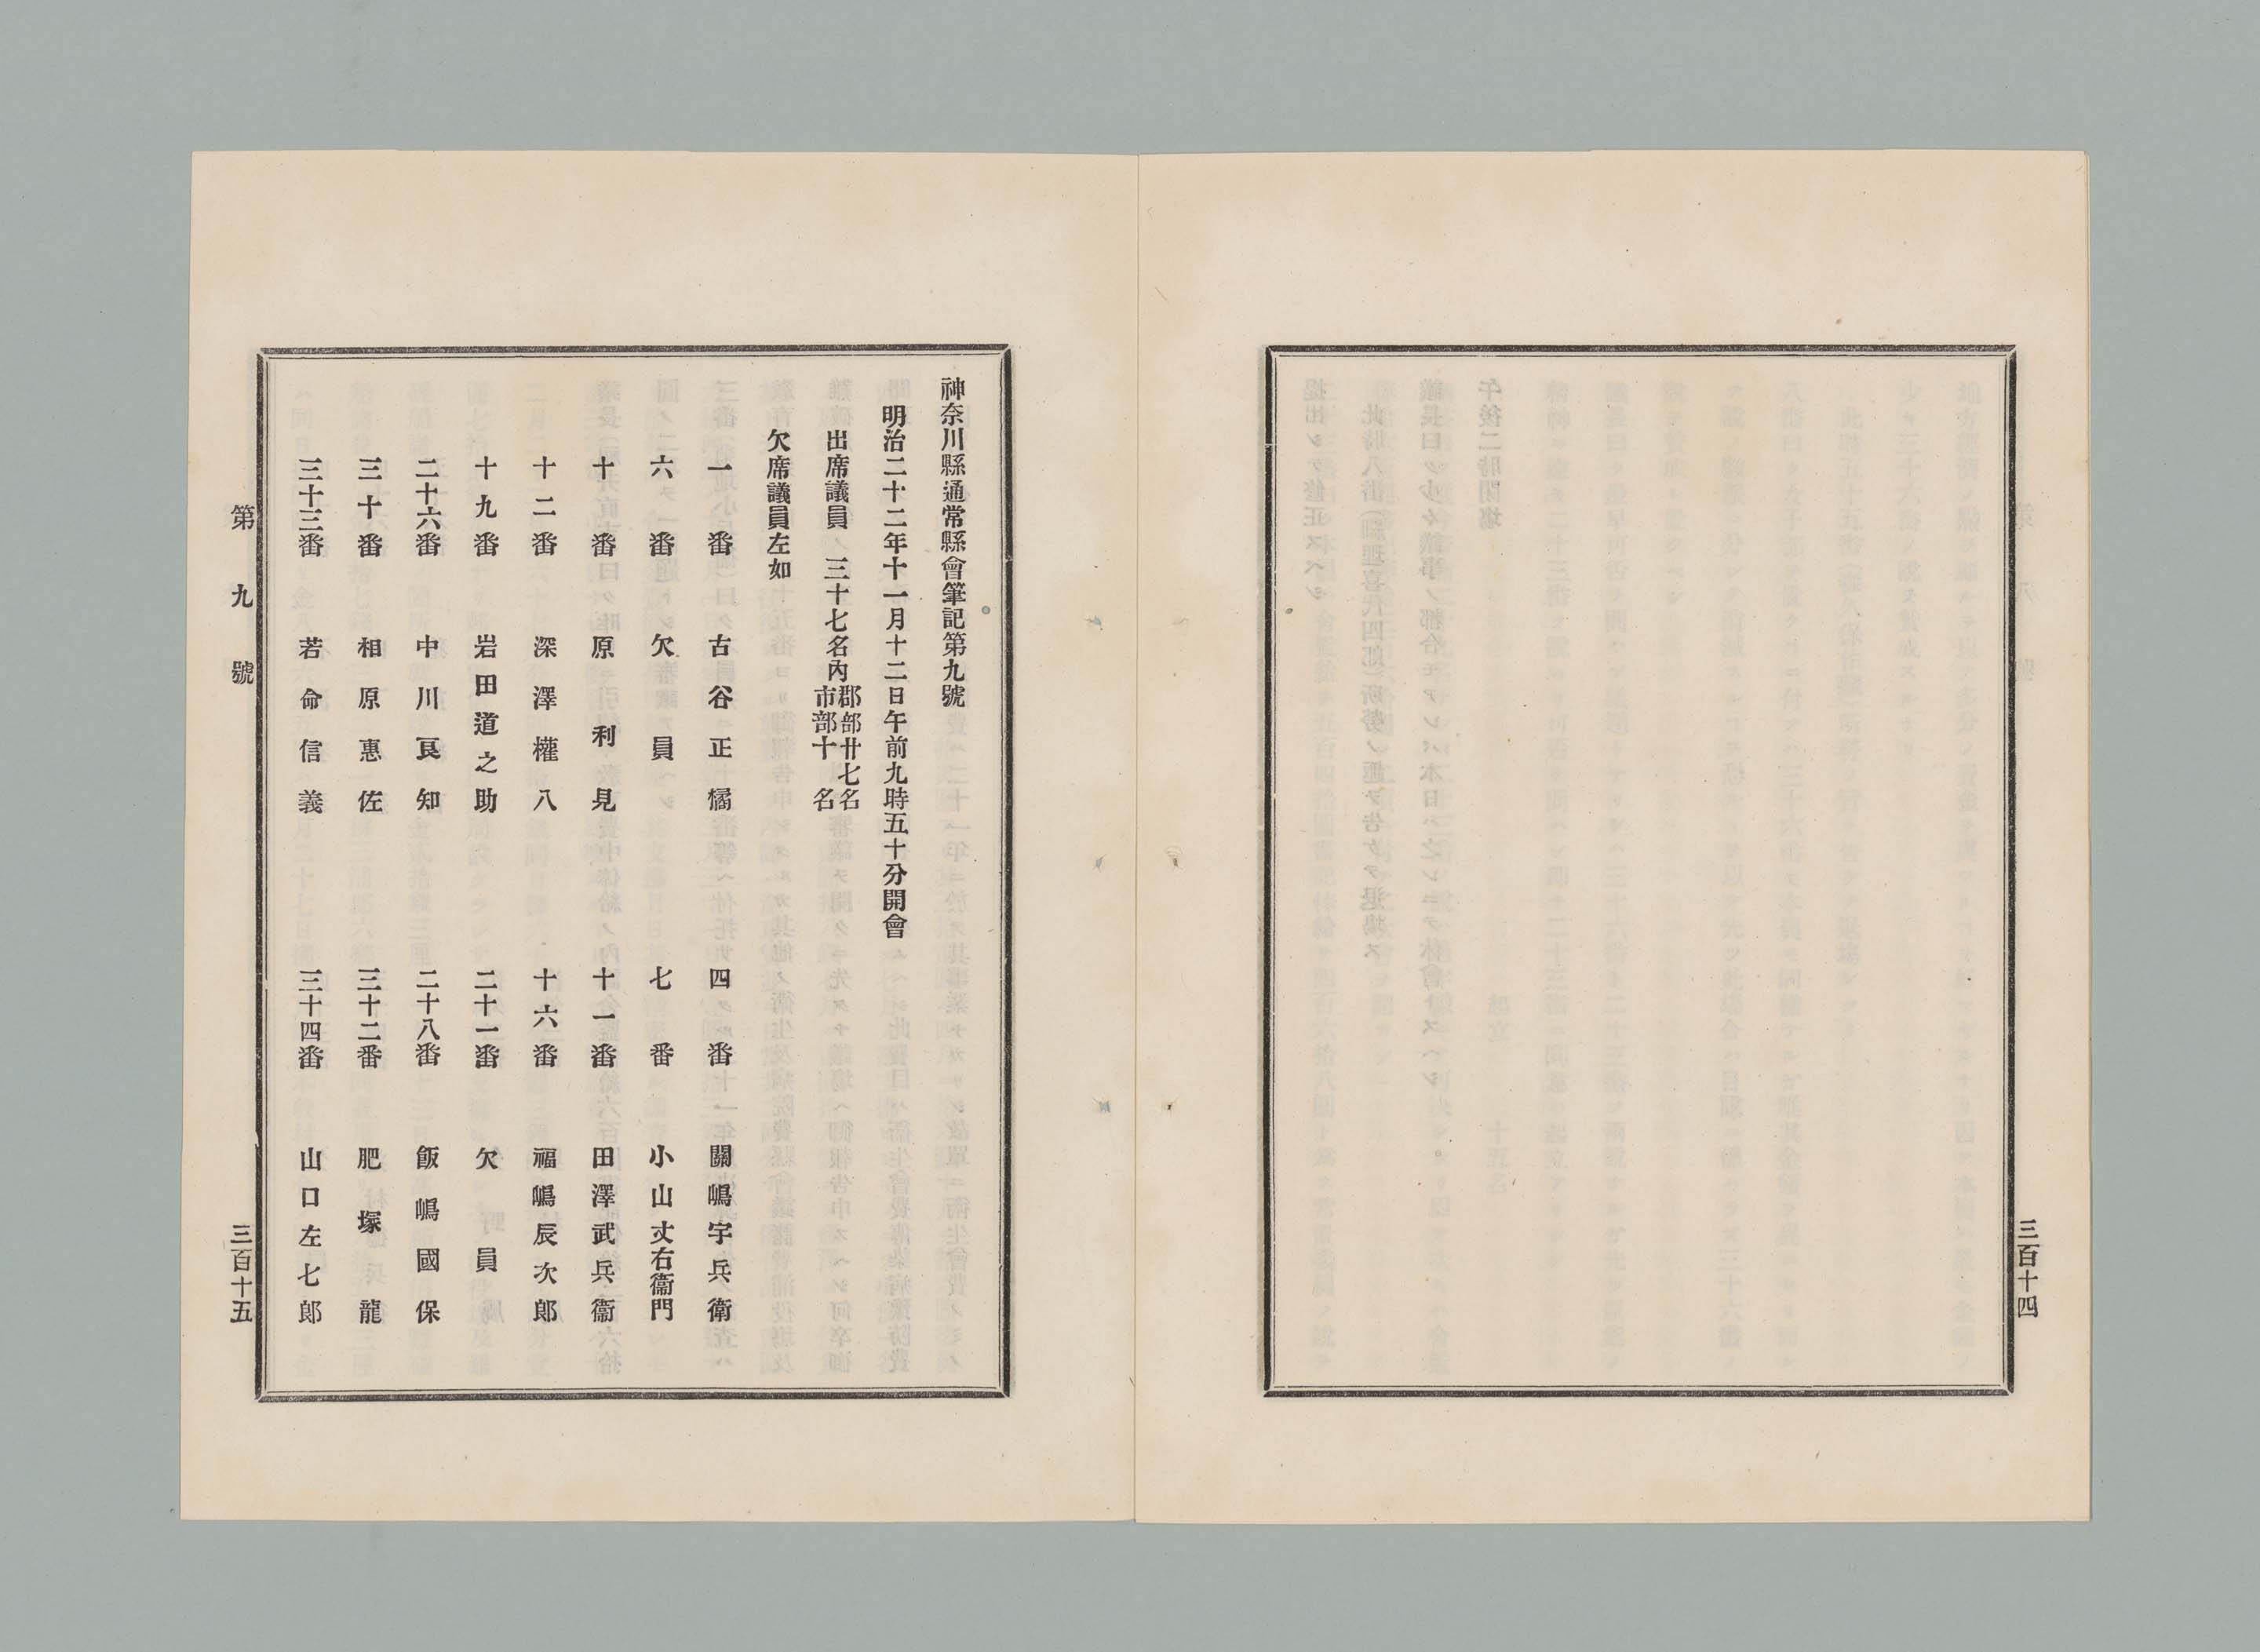 三百十四
神奈川縣通常縣會筆記第九號
明治二十二年十一月十二日午前九時五十分開會
出席議員 三十七名內 郡部廿七名 市部十名
欠席議員左如
一番 古谷正橘 四番 關嶋宇兵衛
六番 欠員 七番 小山丈右衞門
十番 原利見 十一番 田澤武兵衞
十二番 深澤權八 十六番 福嶋辰次郞
十九番 岩田道之助 二十一番 欠員
二十六番 中川良知 二十八番 飯嶋國保
三十番 相原惠佐 三十二番 肥塚龍
三十三番 若命信義 三十四番 山口左七郞
第九號
三百十五